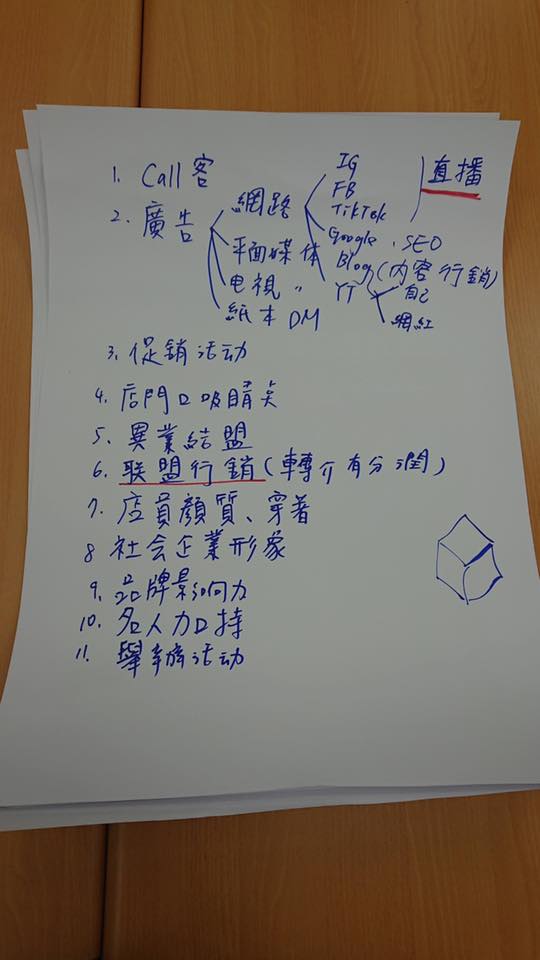 1. Call客
2. 廣告
網路
IG
FB
TikTok
直播
Google、SEO
Blog(內容行銷)
YT
自己
網紅
平面媒体
电視 〃
紙本DM
3. 促銷活动
4. 店門口吸睛
5. 異業結盟
6. 联盟行銷(轉介有分潤)
7. 店員顏質、穿著
8 社会企業形象
9. 品牌影响力
10. 名人加持
11. 舉辦活动